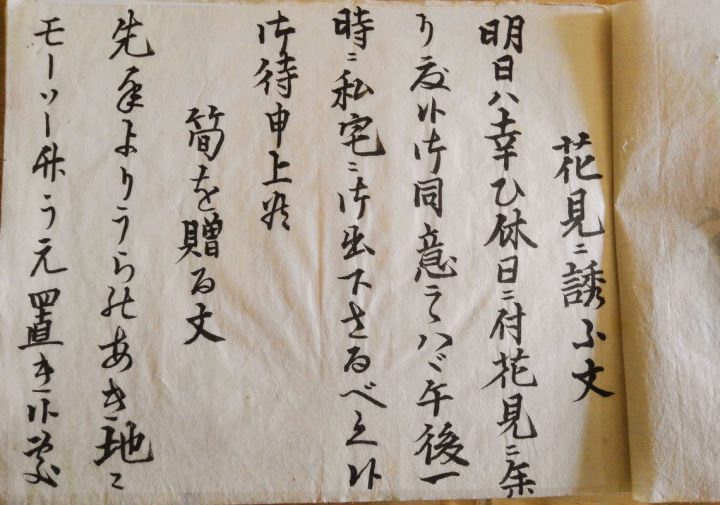 花見ニ誘ふ文
明日ハ幸ひ休日ニ付花見ニ参
り度候御同意ニ候ハヾ午後一
時ニ私宅ニ御出下さるべく候
御待申上候
筍を贈る文
先年ようりうらのあき地に
モーソー竹うえ置き候処